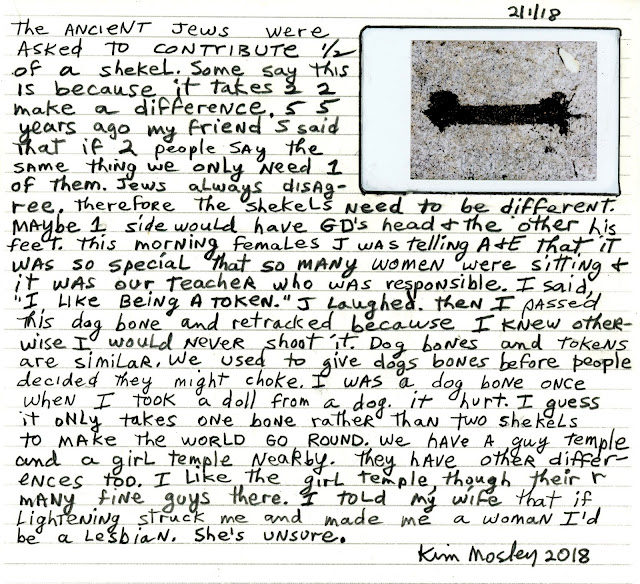 2/1/18
The ANCIENT Jews were
ASKED TO CONTRIBUTE 1/2
of a shekel. Some say this
is because it takes 2
make a difference. 55
years ago my friend S said
that if 2 people SAY the
SAME thing we only Need 1
of them. Jews always disag-
ree. therefore the shekels Need to be different.
MAYBE 1 side would have GD's head + the other his
feet. this morning females J WAS telling A+E that it
WAS so special that so MANY women were sitting +
it WAS our teacher who WAS responsible. I said,
"I LIKE BEING A TOKEN." J Laughed. then I passed
this dog bone and retracked because I KNEW other-
wise I would NEVER shoot it. Dog bones and tokens
are similar. We used to give dogs bones before people
decided they might choke. I WAS a dog bone once
when I took a doll from a dog. it hurt. I guess
it only takes one bone rather than two shekels
to MAKE the WORLD GO ROUND. We HAVE A guy temple
and a girl temple Nearby. they HAVE other differ-
ences too. I LIKE the girl temple, though their r
MANY fine guys there. I told my wife that if
Lightening struck me and made me a woman I'd
be a Lesbian. She's unsure.
Kim Mosley 2018